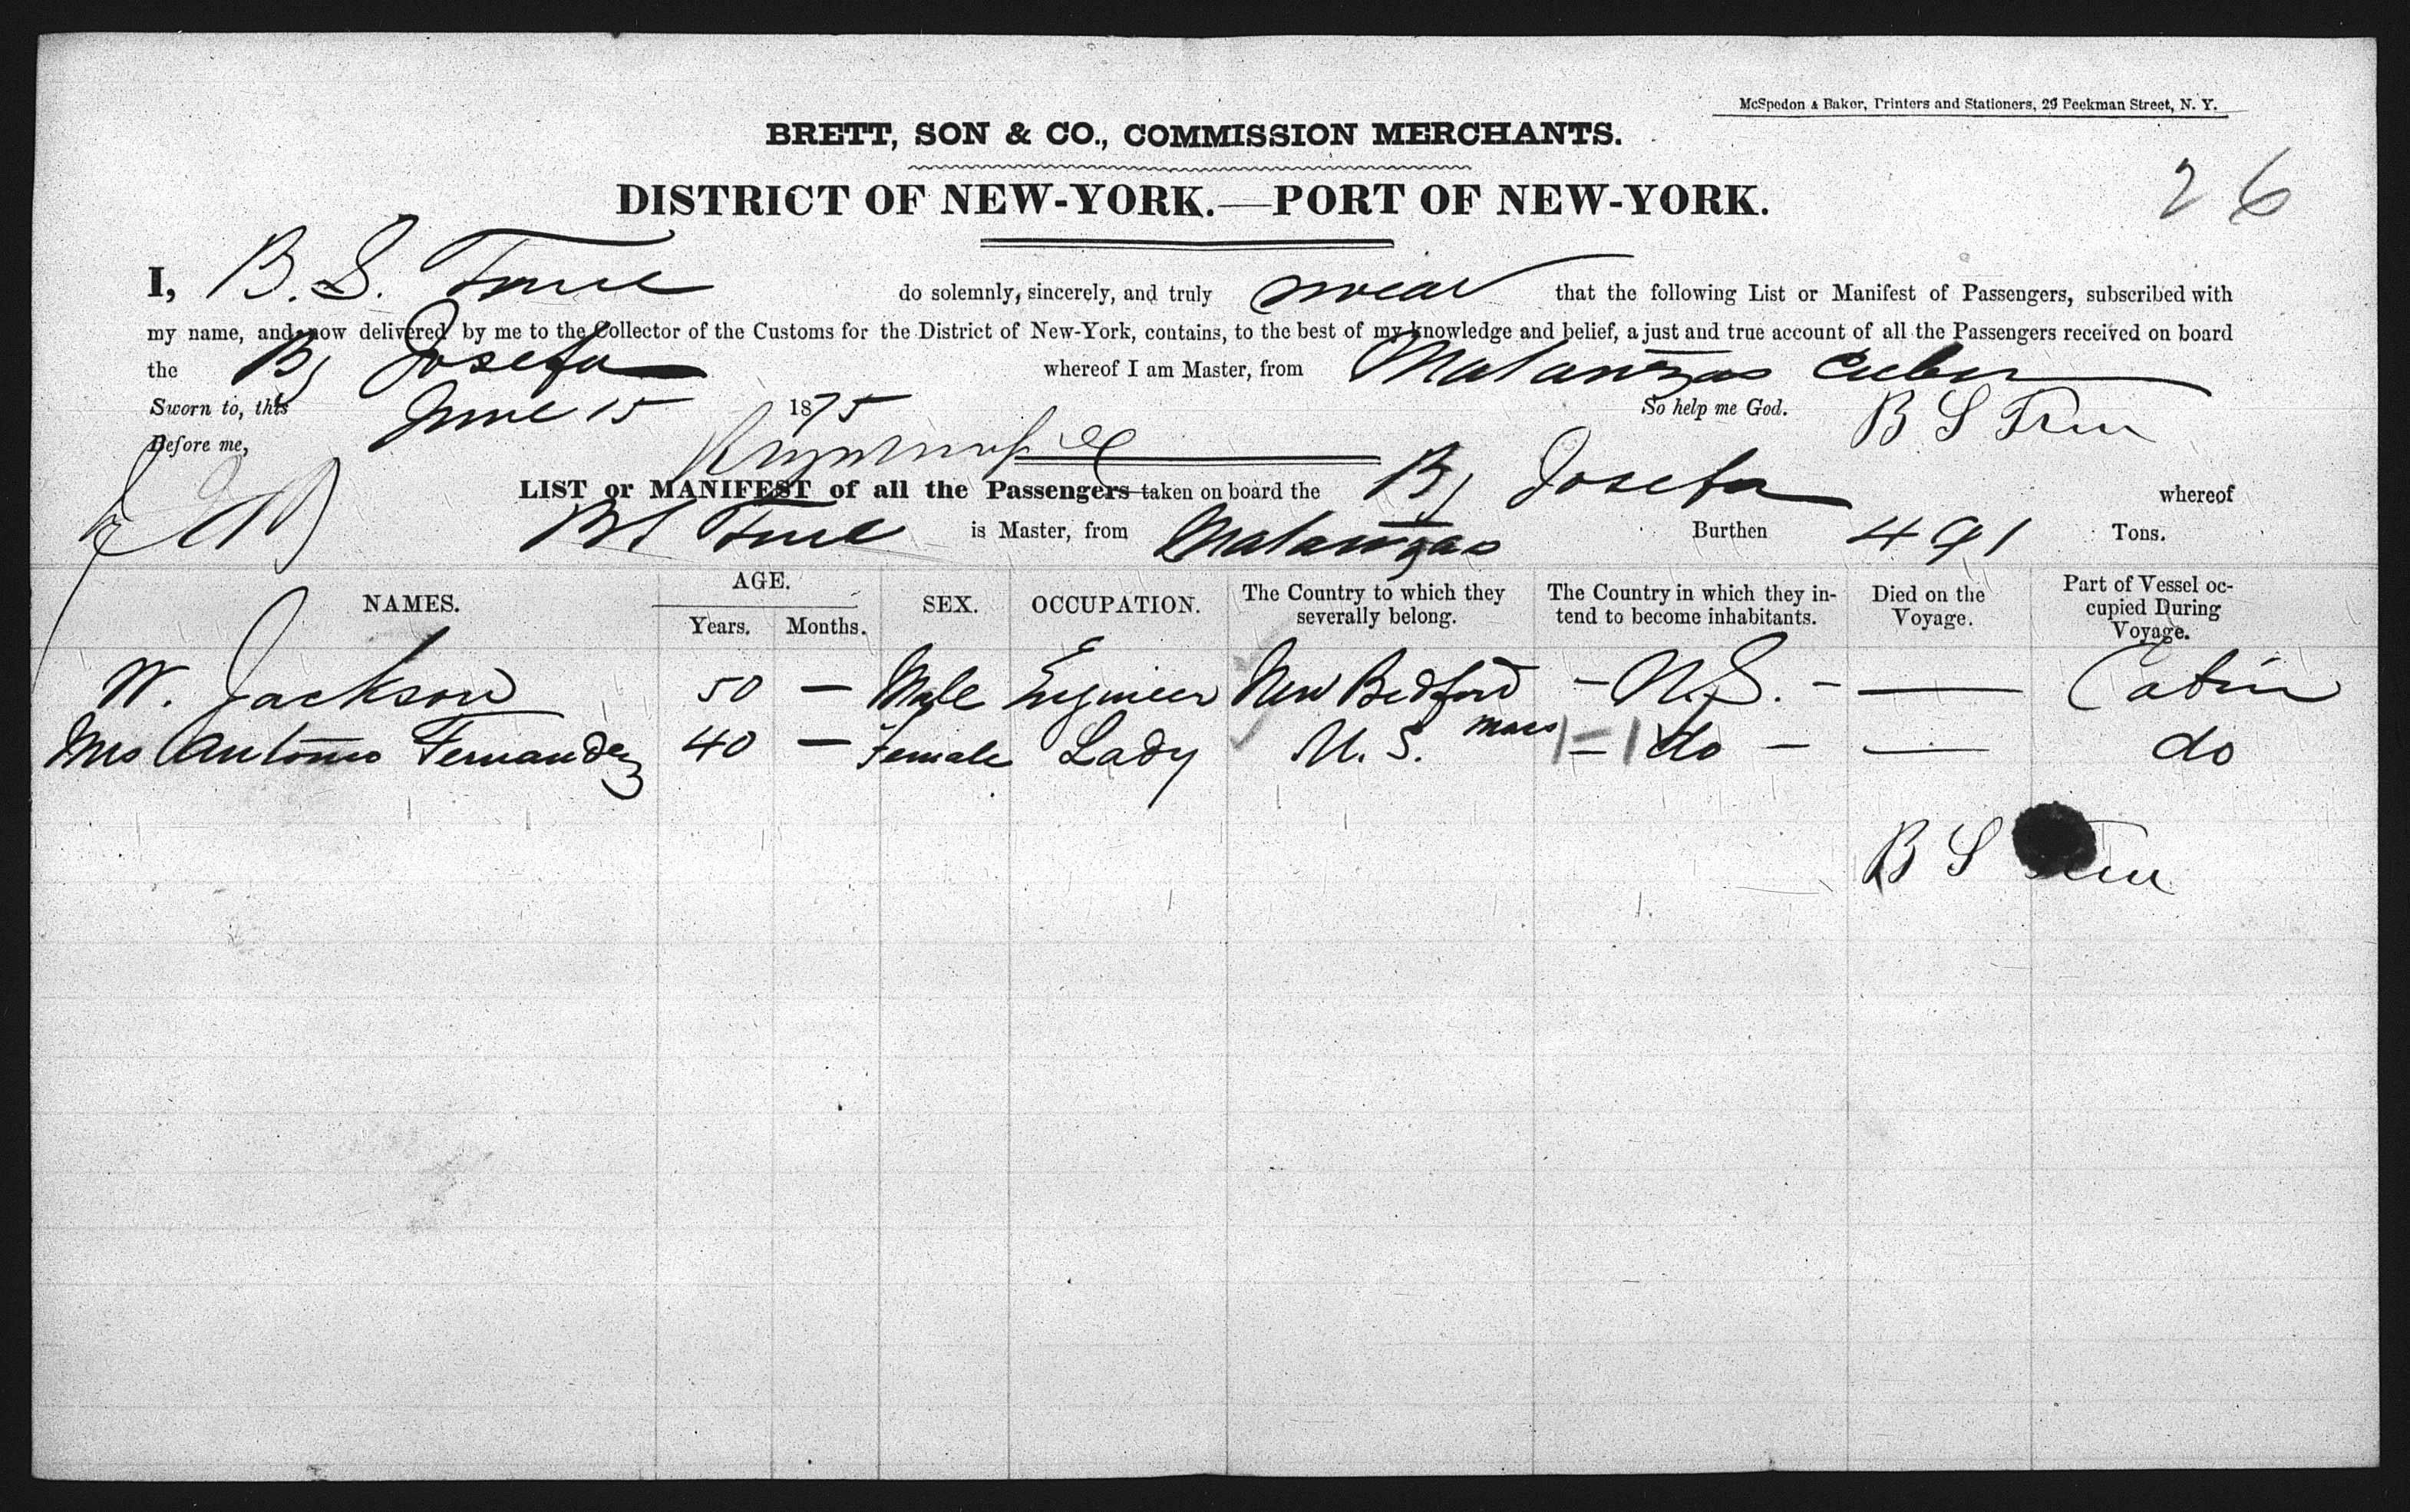 McSpedon & Baker, Printers and Stationers, 29 Beekman Street, N. Y.
BRETT, SON & CO., COMMISSION MERCHANTS.
26
DISTRICT OF NEW-YORK.—PORT OF NEW-YORK.
I, B. S. True do solemnly, sincerely, and truly swear that the following List or Manifest of Passengers, subscribed with
my name, and now delivered by me to the Collector of the Customs for the District of New-York, contains, to the best of my knowledge and belief, a just and true account of all the Passengers received on board
the Bg Josefa whereof I am Master, from Matanzas Cuba
Sworn to, this June 15 1875 So help me God. B S True
Before me,
LIST or MANIFEST of all the Passengers taken on board the Bg Josefa whereof
B S True is Master, from Matanzas Burthen 491 Tons.
NAMES. AGE. Years. Months. SEX. OCCUPATION. The Country to which they severally belong. The Country in which they intend to become inhabitants. Died on the Voyage. Part of Vessel occupied During Voyage.
W. Jackson 50 — Male Engineer New Bedford Mass — U.S. — — Cabin
Mrs Antonio Fernandez 40 — Female Lady U. S. — do — — do
B S True